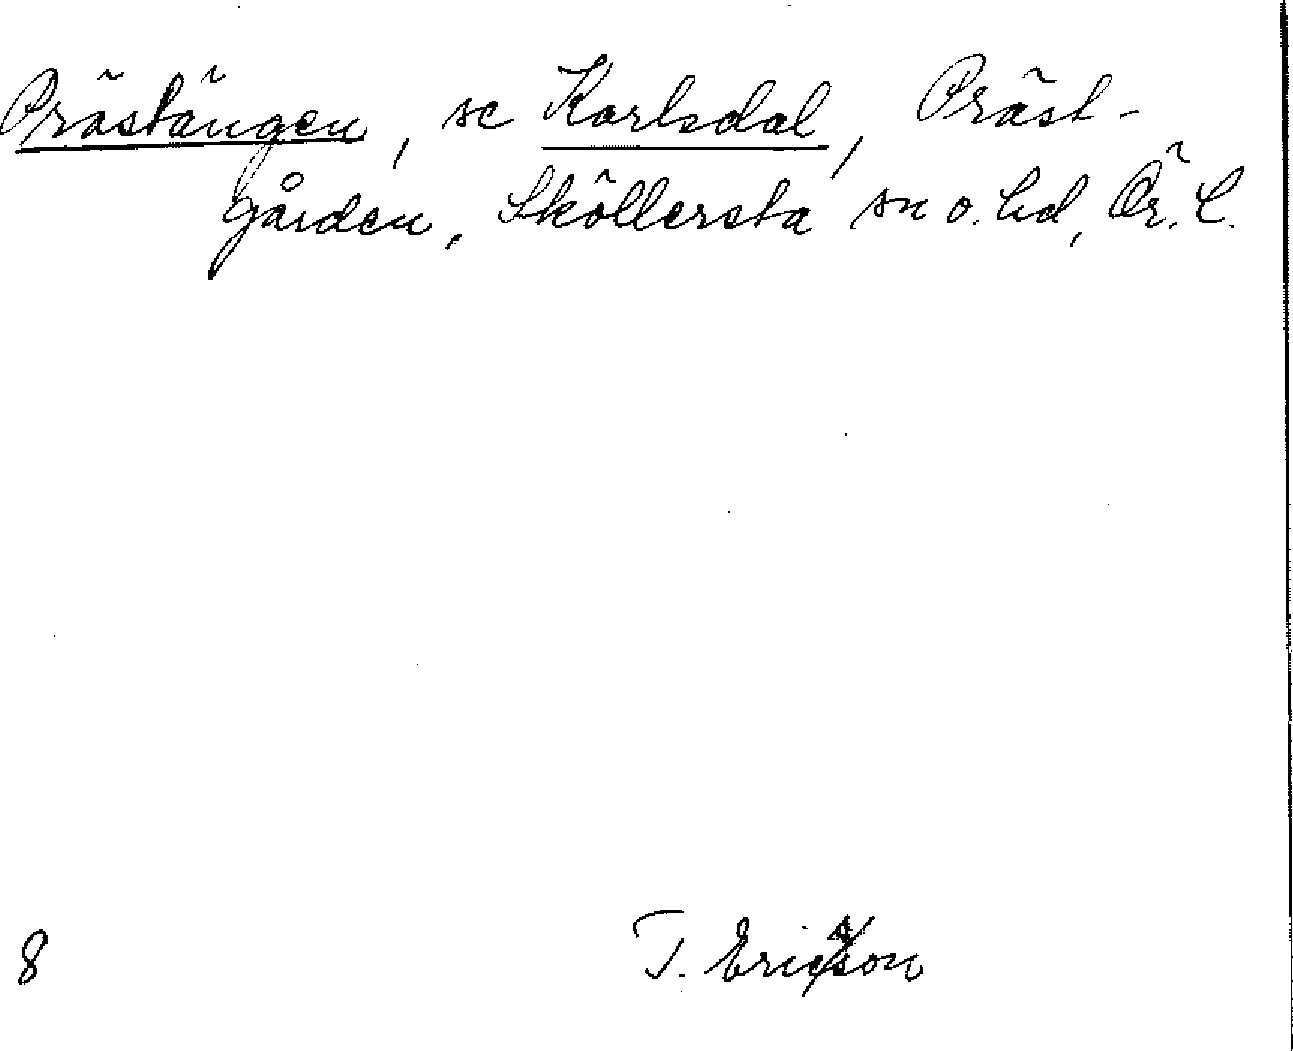 Prästängen, se Karlsdal, Präst-
gården, Sköllersta sn o. hd, Ör. l.
8
T. Ericsson